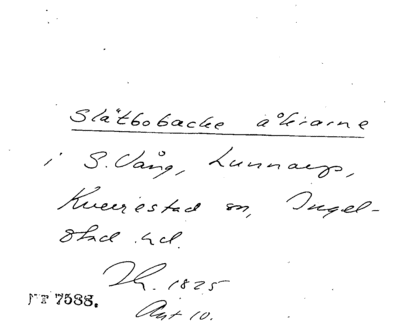 Slätbobacke åkrarne
i S. Vång, Lunnarp,
Kverrestad sn, Ingel-
stad hd.
Th. 1825
Akt 10.
NT 7588.